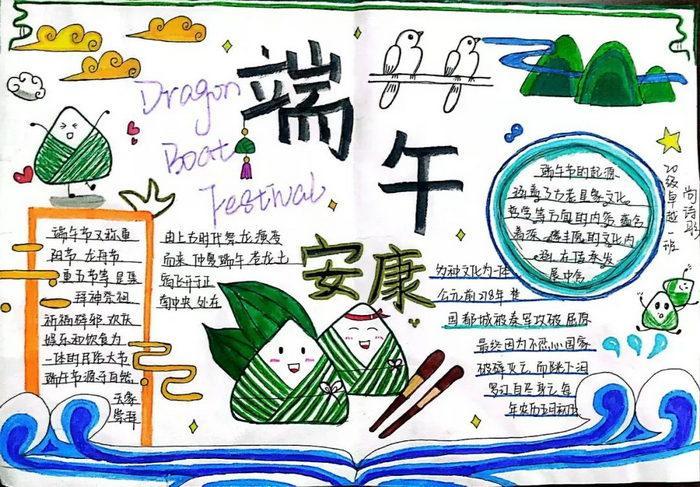 Dragon
Boat
Festival
端
午
安康
端午节又称重
阳节 龙舟节
重五节等 是集
拜神祭祖
祈福辟邪 欢庆
娱乐和饮食为
一体的民俗大节
端午节源于自然
天象
崇拜
由上古时代祭龙演变
而来 仲夏端午 苍龙七
宿飞升于正
南中央 处在
端午节的起源
涵盖了古老星象文化
哲学等方面的内容 蕴含
着深 丰厚的文化内
涵 在传承发
展中杂
为种文化为一体
公元前278年 楚
国都城被秦军攻破 屈原
最终因为不忍心国家
破碎灭亡 而跳下汨
罗江自尽身亡 每
年农历五月初五
20级卓越 班